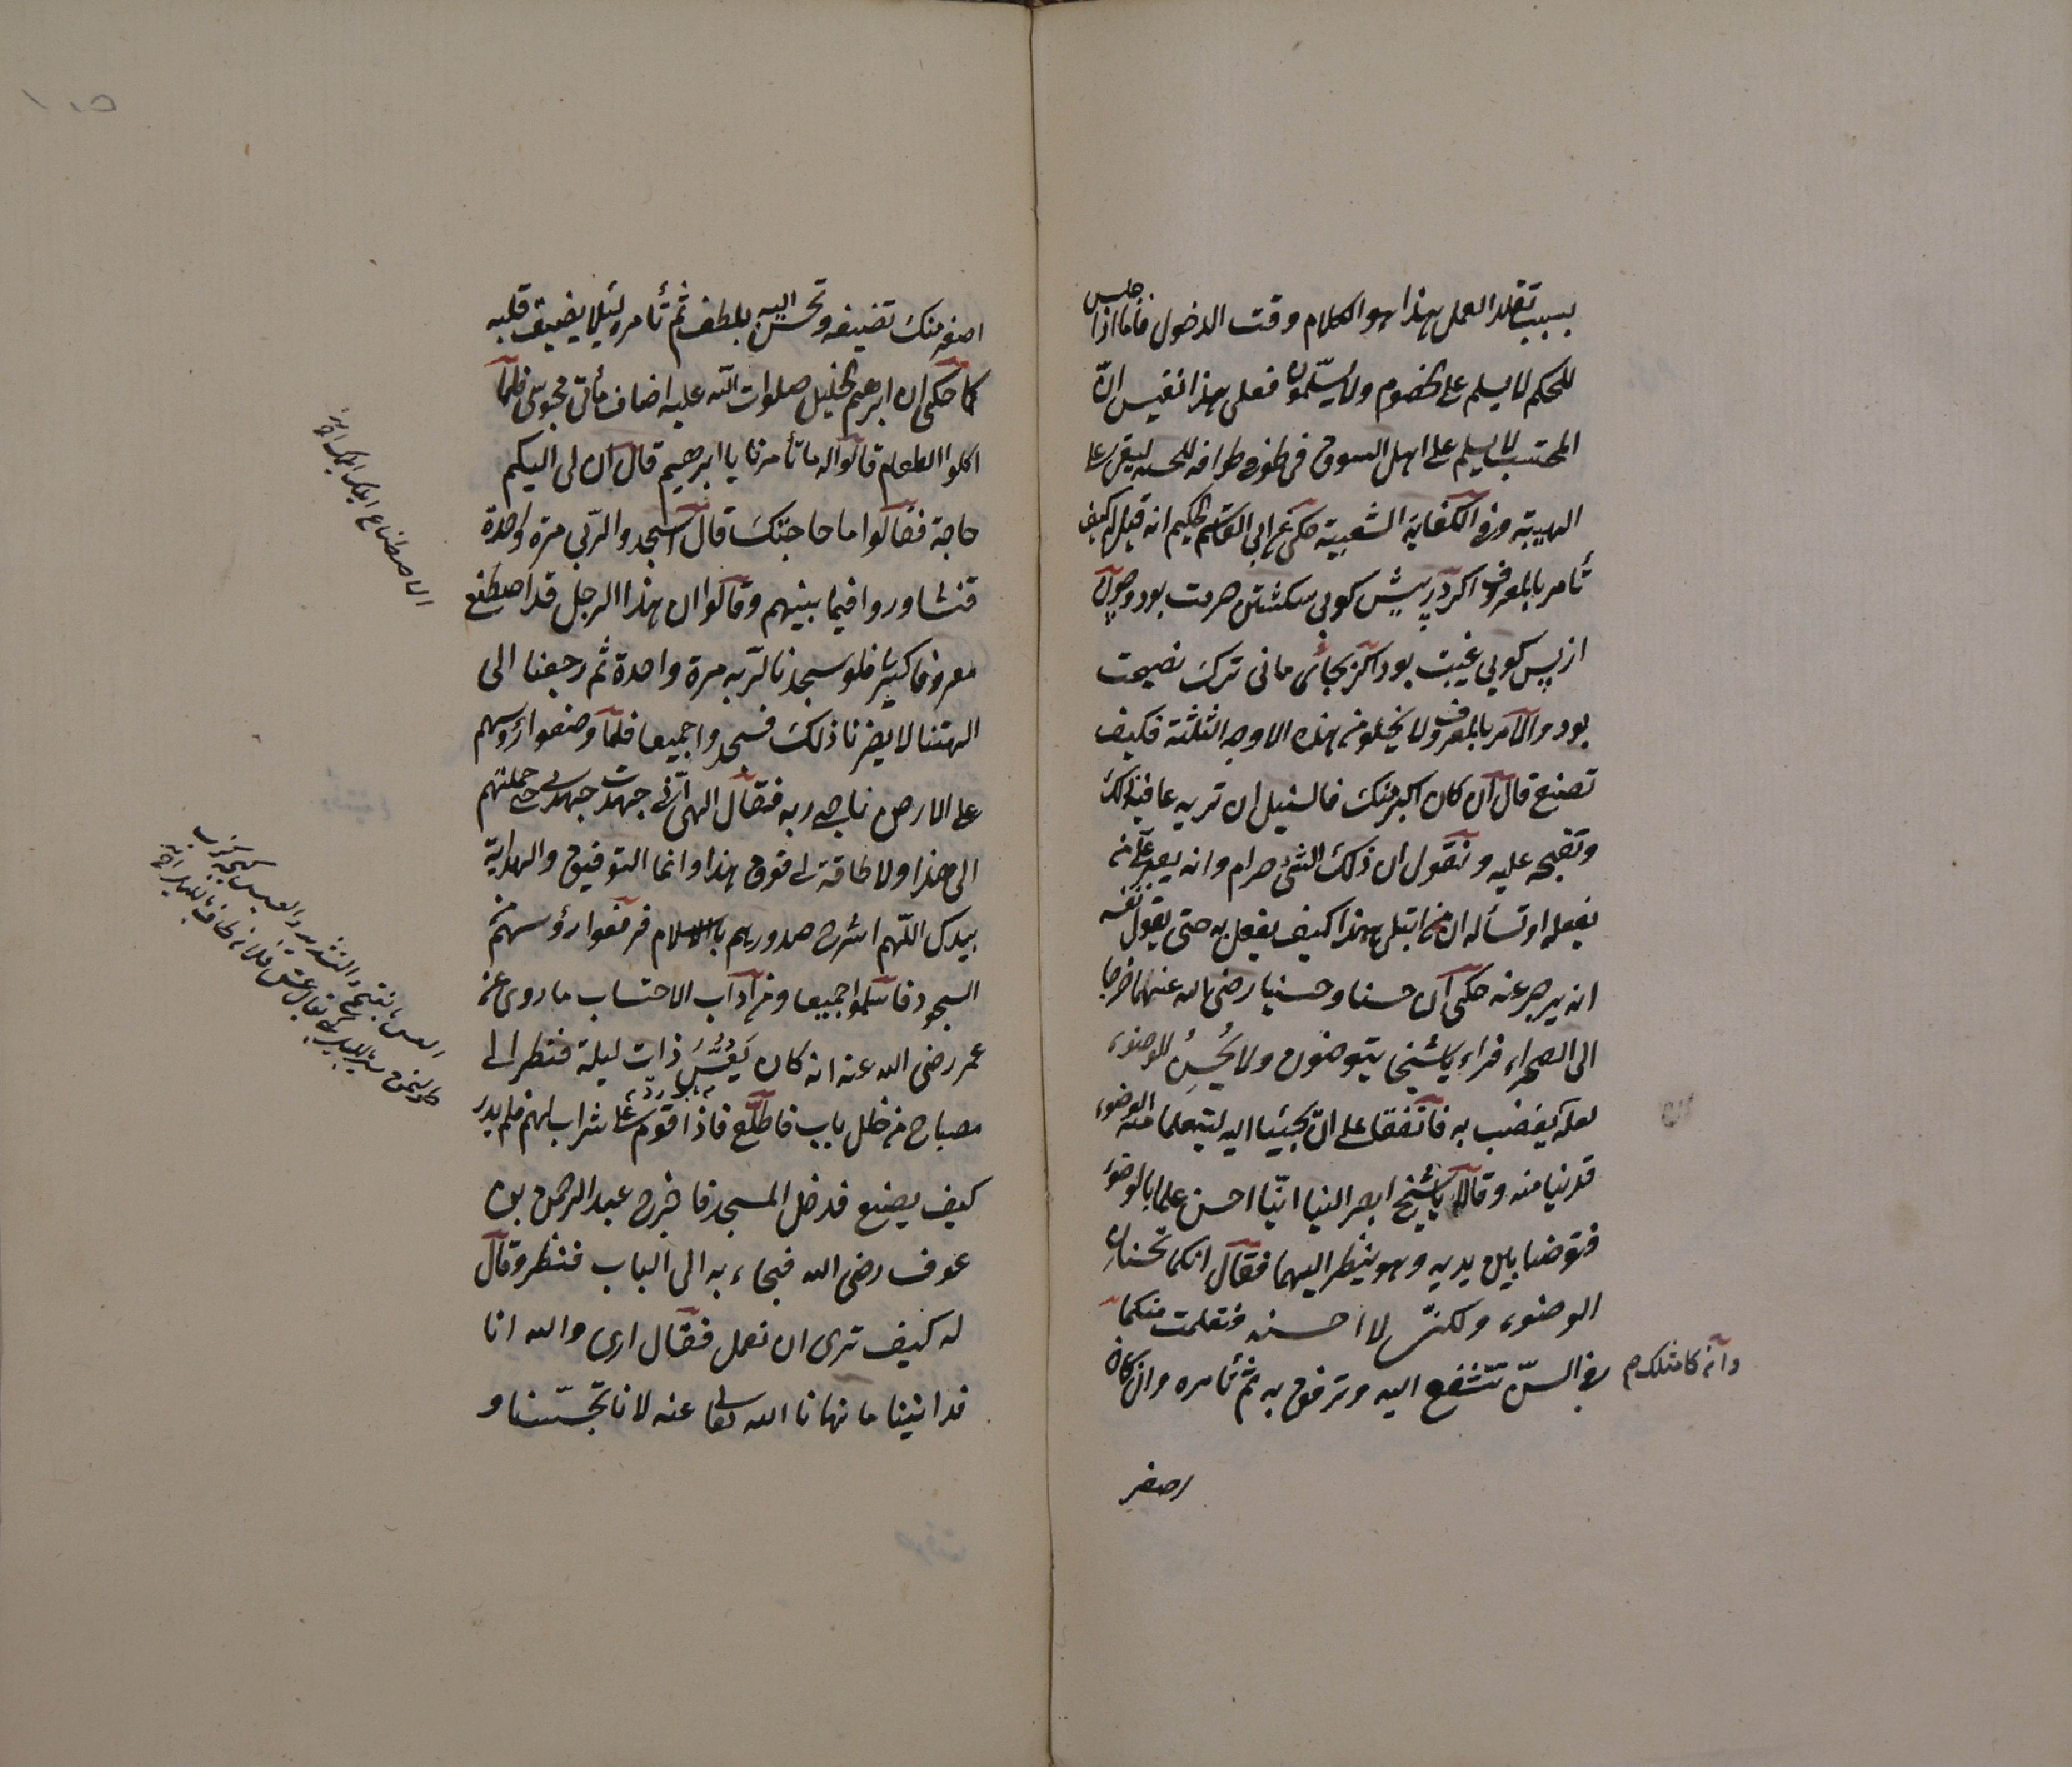 بسبب تقلد العمل هذا هو الكلام وقت الدخول فاما اذا جلس
للحكم لا يسلم على الخصوم ولا يسلمون فعلى هذا نقيس ان
المحتسب لا يسلم على اهل السوق في طوفه طوافه للحسبة ليبقى على
الهيبة وفي الكفاية الشعبية حكى عن ابي القاسم الحكيم انه قيل له كيف
تأمر بالمعروف اكر در پیش كويی شكستن حرمت بود وچون
از پس كويی غيبت بود اكر بجائی مانی ترك نصيحت
بود والامر بالمعروف لا يخلو من هذه الاوجه الثلثة فكيف
تصنع قال ان كان اكبر منك فالسبيل ان تريه عاقبة ذلك
وتقبحه عليه وتقول ان ذلك الشئ حرام وانه يعد على من
يفعله او تسأله ان من ابتلى بهذا كيف يفعل به حتى يقول نفسه
انه يزجر عنه حكى ان حسنا وحسينا رضي الله عنهما خرجا
الى الصحراء فراءيا شيخا يتوضؤن ولا يحسن للوضوء
لعله يغضب به فاتفقا على ان يجيئا اليه ليتعلما منه الوضوء
فدنيا منه وقالا يا شيخ ابصر الينا اينا احسن علما بالوضوء
فتوضيا بين يديه وهو ينظر اليهما فقال انكما تحسنان
الوضوء ولكني لا احسنه فتعلمت منكما
وان كان مثلك م في السن تتشفع اليه وترفق به ثم تأمره وان كان
اصغر
اصغر منك تضيفه وتحسن اليه بلطف ثم تأمره ليئلا يضيق قلبه
كما حكى ان ابرهيم الخليل صلوات الله عليه اضاف مأتي مجوسي فلما
اكلوا الطعام قالوا له ما تأمرنا يا ابرهيم قال ان لى اليكم
حاجة فقالوا ما حاجتك قال اسجدوا لربي مرة واحدة
فتشاوروا فيما بينهم وقالوا ان هذا الرجل قد اصطنع
معروفا كثيرا فلو سجدنا لربه مرة واحدة ثم رجعنا الى
الهتنا لا يضرنا ذلك فسجدوا جميعا فلما وضعوا رؤسهم
على الارض ناجى ربه فقال الهى انى جهدت جهدى حتى حملتهم
الى هذا ولا طاقة لى فوق هذا وانما التوفيق والهداية
بيدك اللهم اشرح صدورهم بالاسلام فرفعوا رؤسهم من
السجود فاسلموا جميعا ومن آداب الاحتساب ما روى عن
عمر رضى الله عنه انه كان يعس ذات ليلة فنظر الى
مصباح من خلل باب فاطلع فاذا قوم على شراب لهم فلم يدر
كيف يصنع فدخل المسجد فاخرج عبد الرحمن بن
عوف رضى الله فجاء به الى الباب فنظر وقال
له كيف ترى ان نعمل فقال ارى والله انا
قد اتينا ما نهانا الله تعالى عنه لانا تجسسنا و
الاصطناع